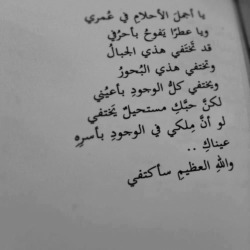 يا أجملَ الأحلامِ في عُمري
ويا عطرًا يَفوحُ بأحرُفي
قد تَختَفي هذي الجبالُ
وتختفي هذي البُحورُ
ويختفي كلُّ الوجودِ بأعيُني
لكنَّ حبَّكِ مستحيلٌ يَختفي
لو أنَّ مِلكي في الوجودِ بأسرِهِ
عيناكِ ..
واللهِ العظيمِ سأكتفي